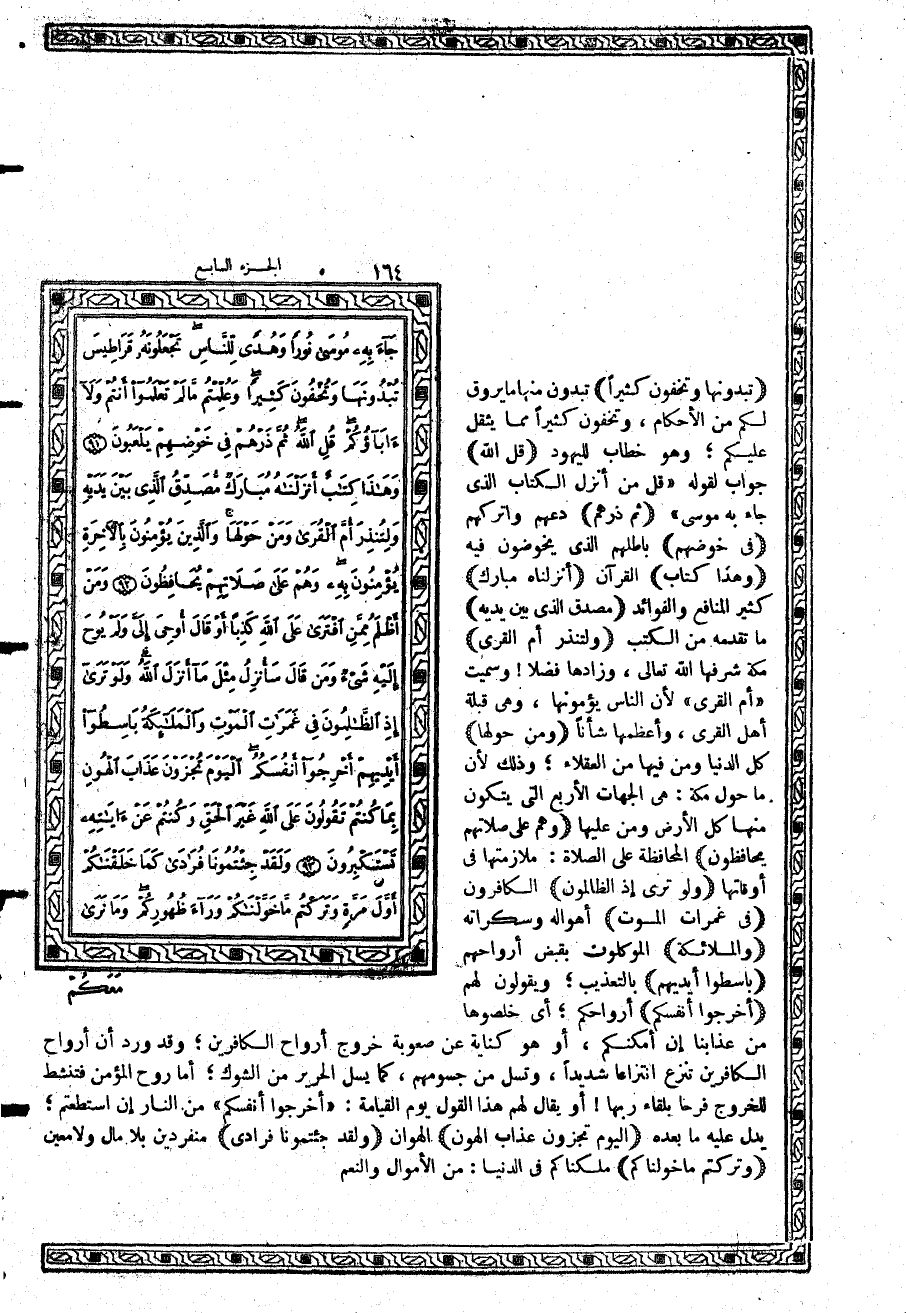 ١٦٤ الجزء السابع
جَآءَ بِهِۦ مُوسَىٰ نُورًا وَهُدًى لِّلنَّاسِ ۖ تَجْعَلُونَهُۥ قَرَاطِيسَ
تُبْدُونَهَا وَتُخْفُونَ كَثِيرًا ۖ وَعُلِّمْتُم مَّا لَمْ تَعْلَمُوٓا۟ أَنتُمْ وَلَآ
ءَابَآؤُكُمْ ۖ قُلِ ٱللَّهُ ۖ ثُمَّ ذَرْهُمْ فِى خَوْضِهِمْ يَلْعَبُونَ ﴿٩١﴾
وَهَٰذَا كِتَٰبٌ أَنزَلْنَٰهُ مُبَارَكٌ مُّصَدِّقُ ٱلَّذِى بَيْنَ يَدَيْهِ
وَلِتُنذِرَ أُمَّ ٱلْقُرَىٰ وَمَنْ حَوْلَهَا ۚ وَٱلَّذِينَ يُؤْمِنُونَ بِٱلْأٓخِرَةِ
يُؤْمِنُونَ بِهِۦ ۖ وَهُمْ عَلَىٰ صَلَاتِهِمْ يُحَافِظُونَ ﴿٩٢﴾ وَمَنْ
أَظْلَمُ مِمَّنِ ٱفْتَرَىٰ عَلَى ٱللَّهِ كَذِبًا أَوْ قَالَ أُوحِىَ إِلَىَّ وَلَمْ يُوحَ
إِلَيْهِ شَىْءٌ وَمَن قَالَ سَأُنزِلُ مِثْلَ مَآ أَنزَلَ ٱللَّهُ ۗ وَلَوْ تَرَىٰٓ
إِذِ ٱلظَّٰلِمُونَ فِى غَمَرَٰتِ ٱلْمَوْتِ وَٱلْمَلَٰٓئِكَةُ بَاسِطُوٓا۟
أَيْدِيهِمْ أَخْرِجُوٓا۟ أَنفُسَكُمُ ۖ ٱلْيَوْمَ تُجْزَوْنَ عَذَابَ ٱلْهُونِ
بِمَا كُنتُمْ تَقُولُونَ عَلَى ٱللَّهِ غَيْرَ ٱلْحَقِّ وَكُنتُمْ عَنْ ءَايَٰتِهِۦ
تَسْتَكْبِرُونَ ﴿٩٣﴾ وَلَقَدْ جِئْتُمُونَا فُرَٰدَىٰ كَمَا خَلَقْنَٰكُمْ
أَوَّلَ مَرَّةٍ وَتَرَكْتُم مَّا خَوَّلْنَٰكُمْ وَرَآءَ ظُهُورِكُمْ ۖ وَمَا نَرَىٰ
مَعَكُمْ
(تبدونها وتخفون كثيراً) تبدون منها مايروق
لكم من الأحكام ، وتخفون كثيراً مما يثقل
عليكم ؛ وهو خطاب لليهود (قل الله)
جواب لقوله «قل من أنزل الكتاب الذى
جاء به موسى» (ثم ذرهم) دعهم واتركهم
(فى خوضهم) باطلهم الذى يخوضون فيه
(وهذا كتاب) القرآن (أنزلناه مبارك)
كثير المنافع والفوائد (مصدق الذى بين يديه)
ما تقدمه من الكتب (ولتنذر أم القرى)
مكة شرفها الله تعالى ، وزادها فضلا ! وسميت
«أم القرى» لأن الناس يؤمونها ، وهى قبلة
أهل القرى ، وأعظمها شأناً (ومن حولها)
كل الدنيا ومن فيها من العقلاء ؛ وذلك لأن
ما حول مكة : هى الجهات الأربع التى يتكون
منها كل الأرض ومن عليها (وهم على صلاتهم
يحافظون) المحافظة على الصلاة : ملازمتها فى
أوقاتها (ولو ترى إذ الظالمون) الكافرون
(فى غمرات الموت) أهواله وسكراته
(والملائكة) الموكلون بقبض أرواحهم
(باسطوا أيديهم) بالتعذيب ؛ ويقولون لهم
(أخرجوا أنفسكم) أرواحكم ؛ أى خلصوها
من عذابنا إن أمكنكم ، أو هو كناية عن صعوبة خروج أرواح الكافرين ؛ وقد ورد أن أرواح
الكافرين تنزع انتزاعا شديداً ، وتسل من جسومهم ، كما يسل الحرير من الشوك ؛ أما روح المؤمن فتنشط
للخروج فرحا بلقاء ربها ! أو يقال لهم هذا القول يوم القيامة : «أخرجوا أنفسكم» من النار إن استطعتم ؛
يدل عليه ما بعده (اليوم تجزون عذاب الهون) الهوان (ولقد جئتمونا فرادى) منفردين بلا مال ولامعين
(وتركتم ماخولناكم) ملكناكم فى الدنيا : من الأموال والنعم